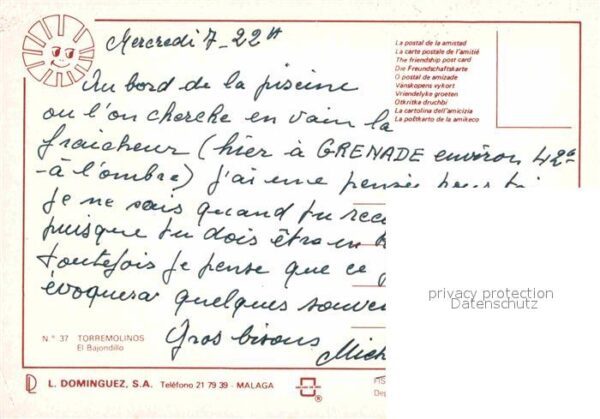 Mercredi 7 - 22H
Au bord de la piscine
ou l'on cherche en vain la
fraicheur (hier à GRENADE environ 42°
-à l'ombre) j'ai eu une pensée pour toi
Je ne sais quand tu rece
puisque tu dois être en
toutefois je pense que ce
évoquera quelques souve
Gros bisous
Mich
La postal de la amistad
La carte postale de l'amitié
The friendship post card
Die Freundschaftskarte
O postal de amizade
Vanskopens vykort
Vriendelyke groeten
Otkritka druchbi
La cartolina dell'amicizia
La poŝtkarto de la amikeco
privacy protection
Datenschutz
N.° 37 TORREMOLINOS
El Bajondillo
L. DOMINGUEZ, S.A. Teléfono 21 79 39 - MALAGA
FIS
Dep